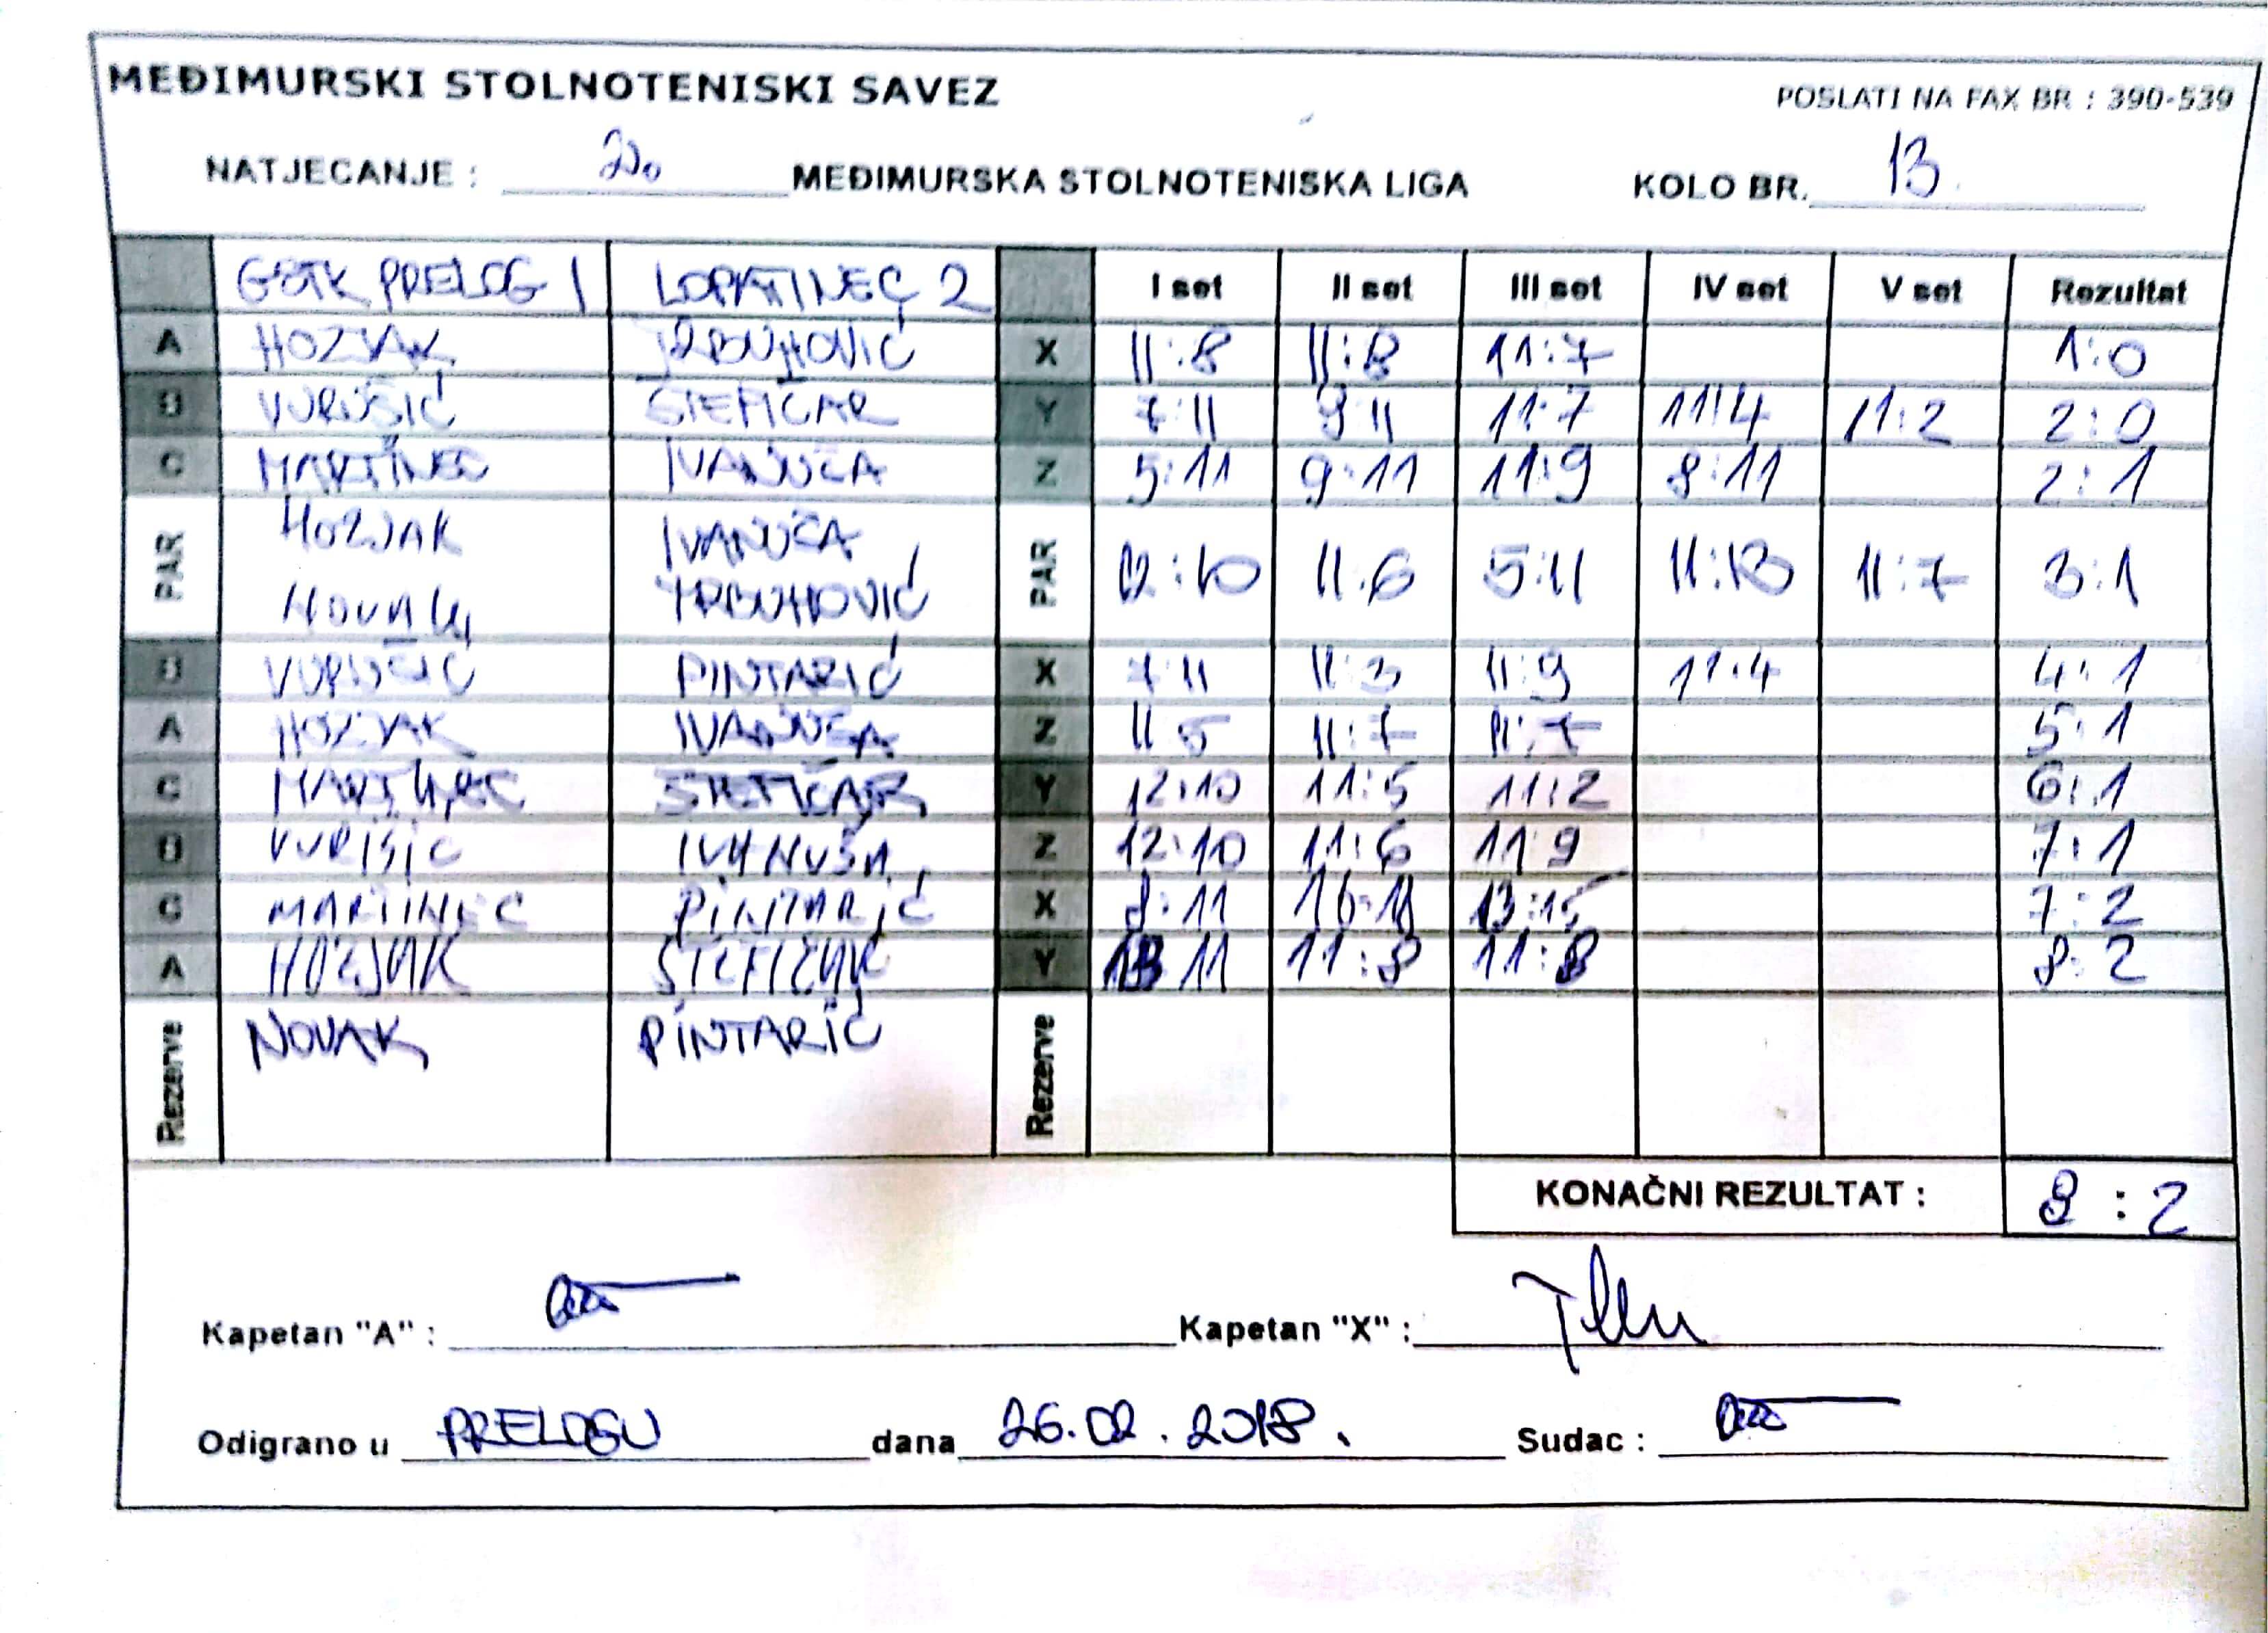 MEĐIMURSKI STOLNOTENISKI SAVEZ POSLATI NA FAX BR : 390-539
NATJECANJE : 2. MEĐIMURSKA STOLNOTENISKA LIGA KOLO BR. 13.
GSTK PRELOG 1 LOPATINEC 2 I set II set III set IV set V set Rezultat
A HOZJAK TRBUHOVIĆ X 11:8 11:8 11:7 1:0
B VURUŠIĆ ŠTEFIČAR Y 7:11 9:11 11:7 11:4 11:2 2:0
C MARTINEC IVANUŠA Z 5:11 9:11 11:9 8:11 2:1
PAR HOZJAK IVANUŠA PAR 12:10 11:6 5:11 11:13 11:7 3:1
NOVAK TRBUHOVIĆ
B VURUŠIĆ PINTARIĆ X 7:11 11:3 11:9 11:4 4:1
A HOZJAK IVANUŠA Z 11:5 11:7 11:7 5:1
C MARTINEC ŠTEFIČAR Y 12:10 11:5 11:2 6:1
B VURISIC IVANUŠA Z 12:10 11:6 11:9 7:1
C MARTINEC PINTARIĆ X 8:11 16:18 13:15 7:2
A HOZJAK ŠTEFIČAR Y 13:11 11:8 11:8 8:2
Rezerve NOVAK PINTARIĆ Rezerve
KONAČNI REZULTAT : 8 : 2
Kapetan "A" : Kapetan "X" :
Odigrano u PRELOGU dana 26.02.2018. Sudac :